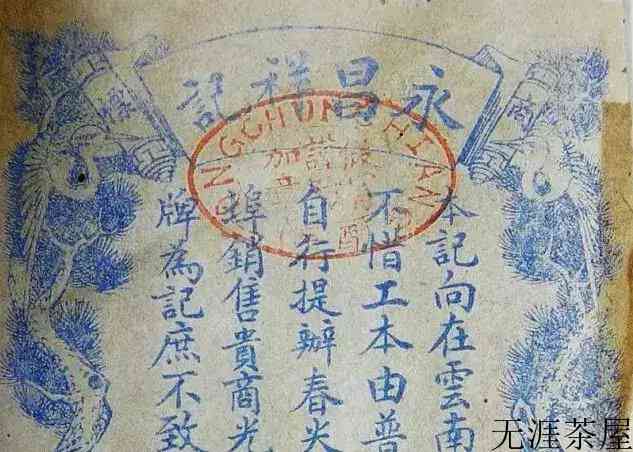 永昌祥記
商標
本記向在雲南
不惜工本由普
自行提辦春尖
埠銷售貴商光
牌為記庶不致
无涯茶屋